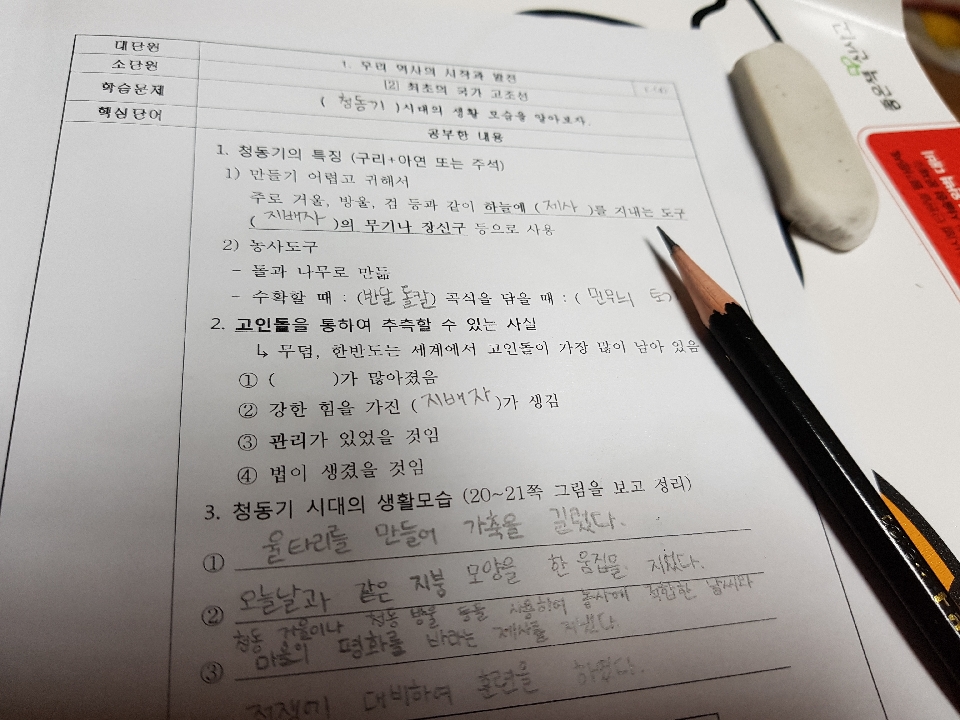 대단원
1. 우리 역사의 시작과 발전
소단원
[2] 최초의 국가 고조선
학습문제
( 청동기 )시대의 생활 모습을 알아보자.
핵심단어
공부한 내용
1. 청동기의 특징 (구리+아연 또는 주석)
1) 만들기 어렵고 귀해서
주로 거울, 방울, 검 등과 같이 하늘에 ( 제사 )를 지내는 도구
( 지배자 )의 무기나 장신구 등으로 사용
2) 농사도구
- 돌과 나무로 만듦
- 수확할 때 : (반달 돌칼) 곡식을 담을 때 : ( 민무늬 토
2. 고인돌을 통하여 추측할 수 있는 사실
↳ 무덤, 한반도는 세계에서 고인돌이 가장 많이 남아 있음
① ( )가 많아졌음
② 강한 힘을 가진 ( 지배자 )가 생김
③ 관리가 있었을 것임
④ 법이 생겼을 것임
3. 청동기 시대의 생활모습 (20~21쪽 그림을 보고 정리)
① 울타리를 만들어 가축을 길렀다.
② 오늘날과 같은 지붕 모양을 한 움집을 지었다.
청동 거울이나 청동 방울 등을 사용하여 농사에 적합한 날씨와
③ 마을의 평화를 바라는 제사를 지냈다.
전쟁에 대비하여 훈련을 하였다.